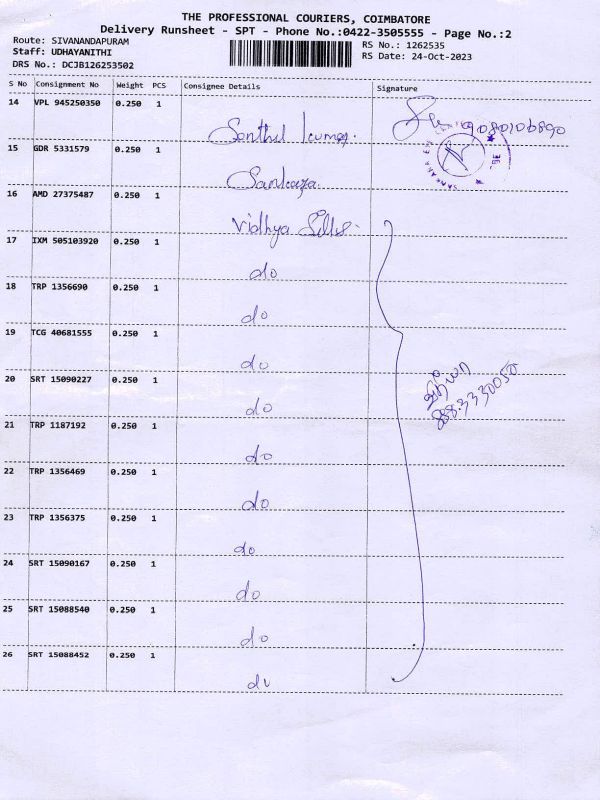 THE PROFESSIONAL COURIERS, COIMBATORE
Delivery Runsheet - SPT - Phone No.:0422-3505555 - Page No.:2
Route: SIVANANDAPURAM
Staff: UDHAYANITHI
DRS No.: DCJB126253502
RS No.: 1262535
RS Date: 24-Oct-2023
S No Consignment No Weight PCS Consignee Details Signature
14 VPL 945250350 0.250 1
Senthil kumar. 9080106890
15 GDR 5331579 0.250 1
Sankara
16 AMD 27375487 0.250 1
Vidhya Silks
17 IXM 505103920 0.250 1
do
18 TRP 1356690 0.250 1
do
19 TCG 40681555 0.250 1
do
20 SRT 15090227 0.250 1
do
21 TRP 1187192 0.250 1
do
22 TRP 1356469 0.250 1
do
23 TRP 1356375 0.250 1
do
24 SRT 15090167 0.250 1
do
25 SRT 15088540 0.250 1
do
26 SRT 15088452 0.250 1
do